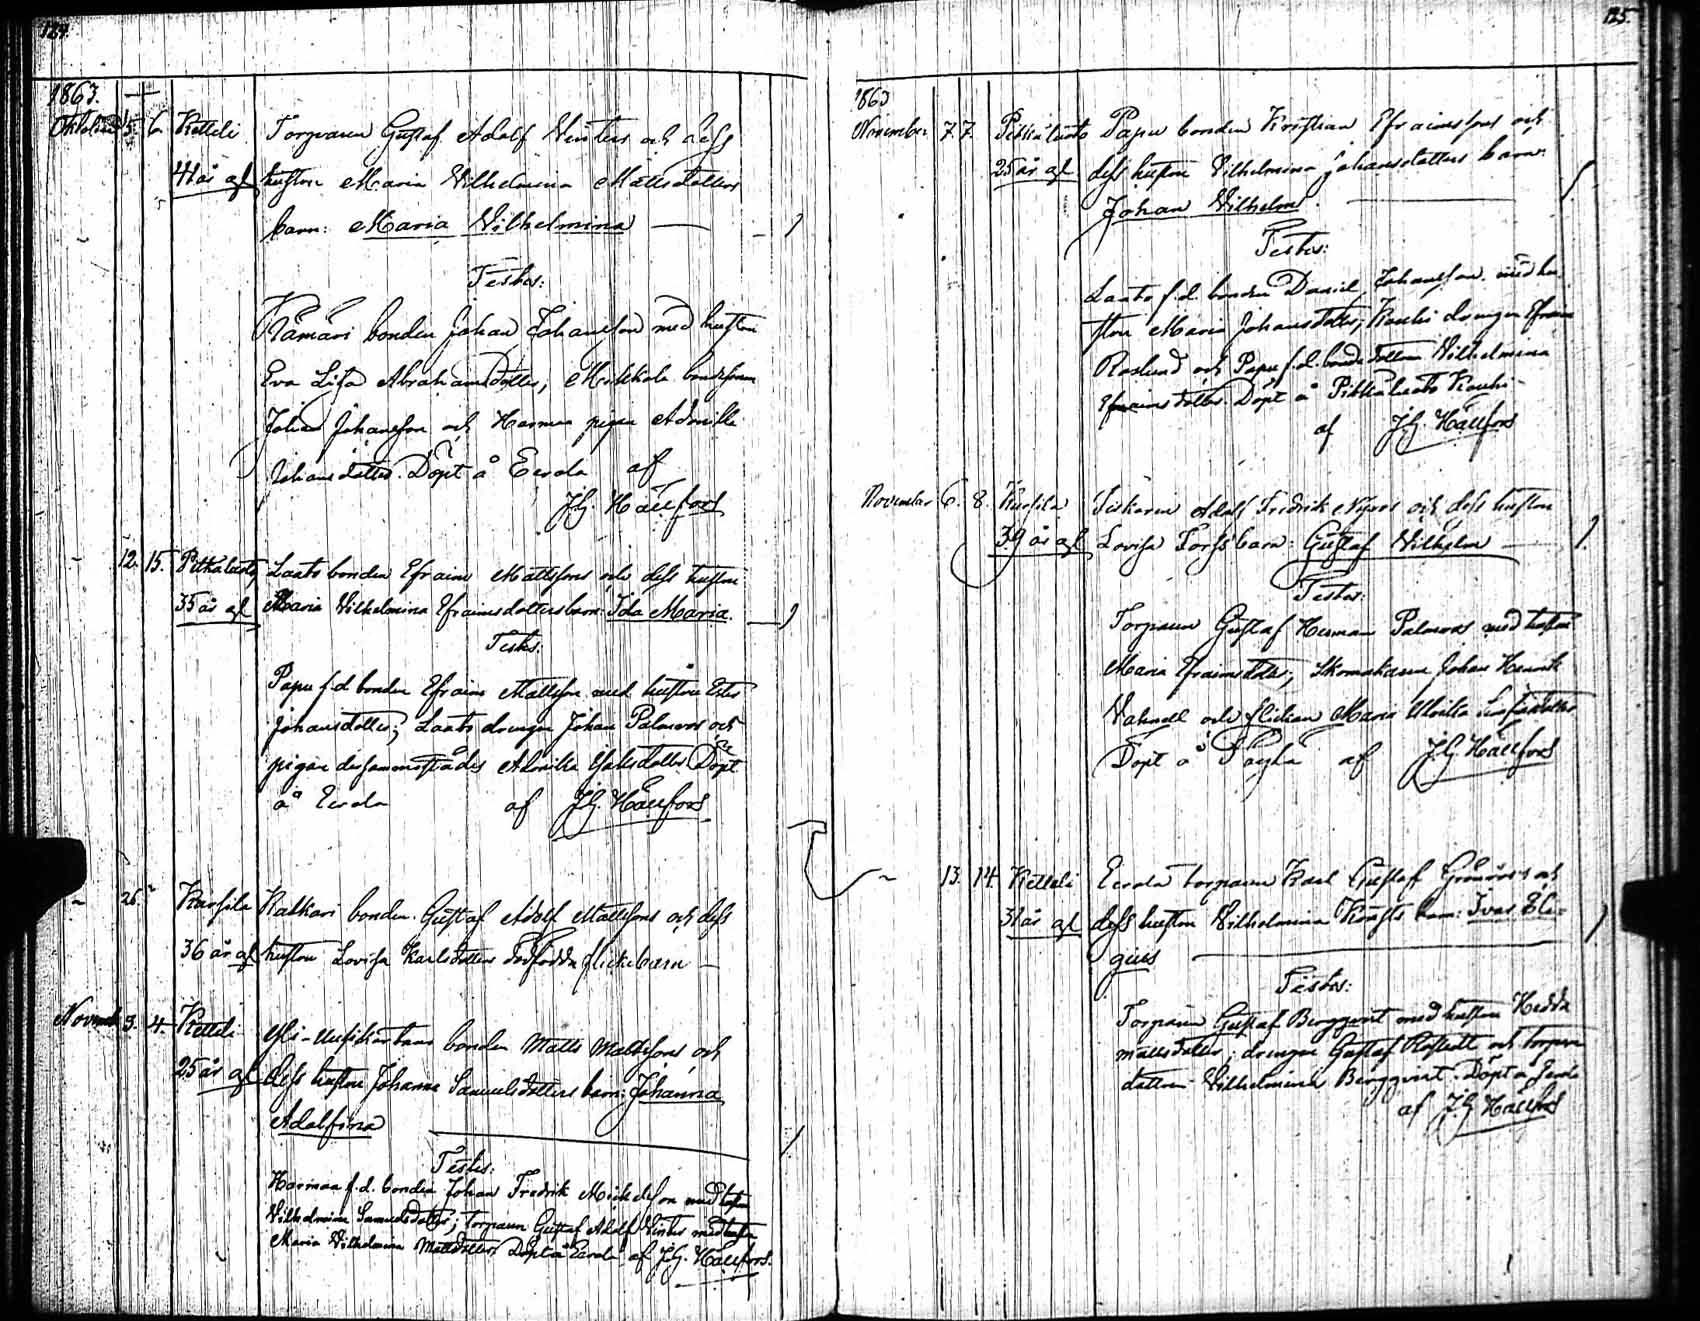 124.
1863.
Oktober 5. 6. Ketteli Torparen Gustaf Adolf Winters och dess
41 år gl hustru Maria Wilhelmina Mattsdotters
barn: Maria Wilhelmina
Testes:
Hämäri bonden Johan Johansson med hustru
Eva Lisa Abrahamsdotter, Mikkola bondesonen
Johan Johansson och Harmaa pigan
Johansdotter. Döpt å Eerola af
J.G. Hällfors
12. 15. Pitkäluoto Laato bonden Efraim Mattssons och dess hustru
35 år gl Maria Wilhelmina Efraimsdotters barn: Ida Maria.
Testes:
Papu f.d. bonden Efraim Mattsson med hustru Ester
Johansdotter; Laato drengen Johan Palmroos och
pigan dersammastädes Ulrika Döpt
å Eerola af J.G. Hällfors
26. Karsila Katkari bonden Gustaf Adolf Mattssons och dess
36 år gl hustru Lovisa Karlsdotters dödfödda flickebarn
Novemb 3. 4. Ketteli bonden Matts Mattssons och
25 år gl dess hustru Johanna Samuelsdotters barn: Johanna
Adolfina
Testes:
Harmaa f.d. bonden Johan Fredrik Mickelsson med hustru
Wilhelmina Samuelsdotter; torparen Gustaf Adolf Winter med hustru
Maria Wilhelmina Mattsdotter. Döpt å Eerola af J.G. Hällfors.
125.
1863
November 7. 7. Pitkäluoto Papu bonden Kristian Efraimssons och
25 år gl dess hustru Wilhelmina Johansdotters barn:
Johan Wilhelm.
Testes:
Laato f.d. bonden Daniel Johansson med hu-
stru Maria Johansdotter; Kouhi drengen Efraim
Roslund och Papu f.d. bondedottern Wilhelmina
Efraimsdotter. Döpt å Pitkäluoto Kouhi
af J.G. Hällfors
November 6. 8. Karsila Fiskaren Adolf Fredrik och dess hustru
39 år gl Lovisa Forss barn: Gustaf Wilhelm
Testes:
Torparen Gustaf Herman Palmroos med hustru
Maria Efraimsdotter; Skomakaren Johan Henrik
och flickan Maria Ulrika
Döpt å af J.G. Hällfors
13. 14. Ketteli Eerola torparen Karl Gustaf Grönroos och
31 år gl dess hustru Wilhelmina barn: Ivar Ele-
gius
Testes:
Torparen Gustaf Bergqvist med hustru Hedda
Mattsdotter; drengen Gustaf och torpare
dottren Wilhelmina Bergqvist. Döpt å Eerola
af J.G. Hällfors